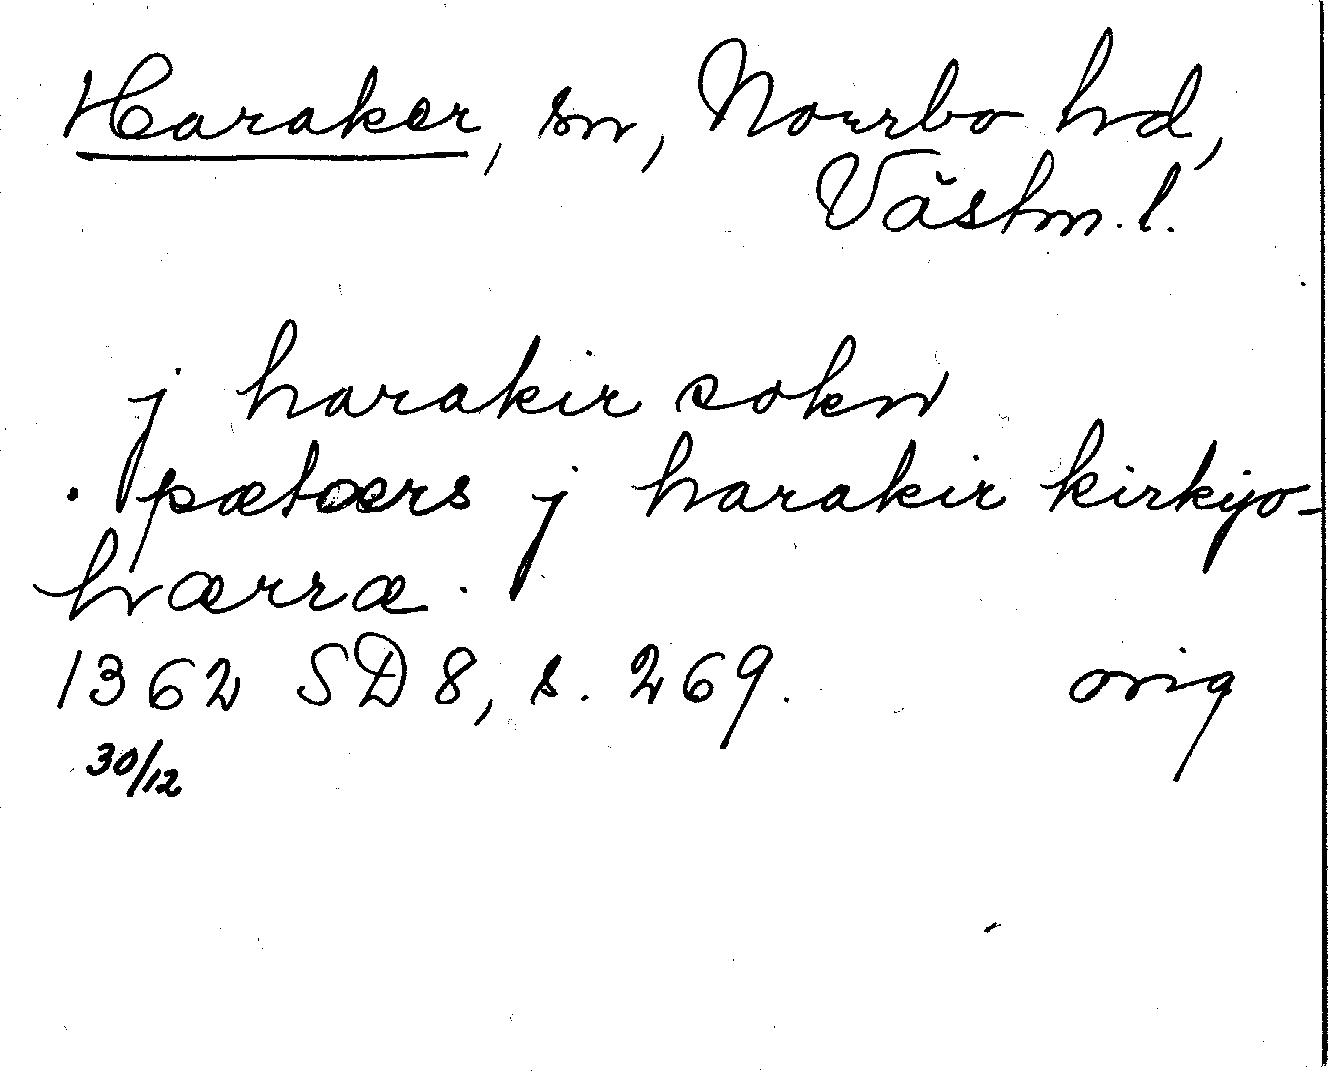 Haraker, sn, Norrbo hd,
Västm. l.
j harakir sokn
. pætærs j harakir kirkyo-
hærræ.
1362 SD 8, s. 269. orig
30/12